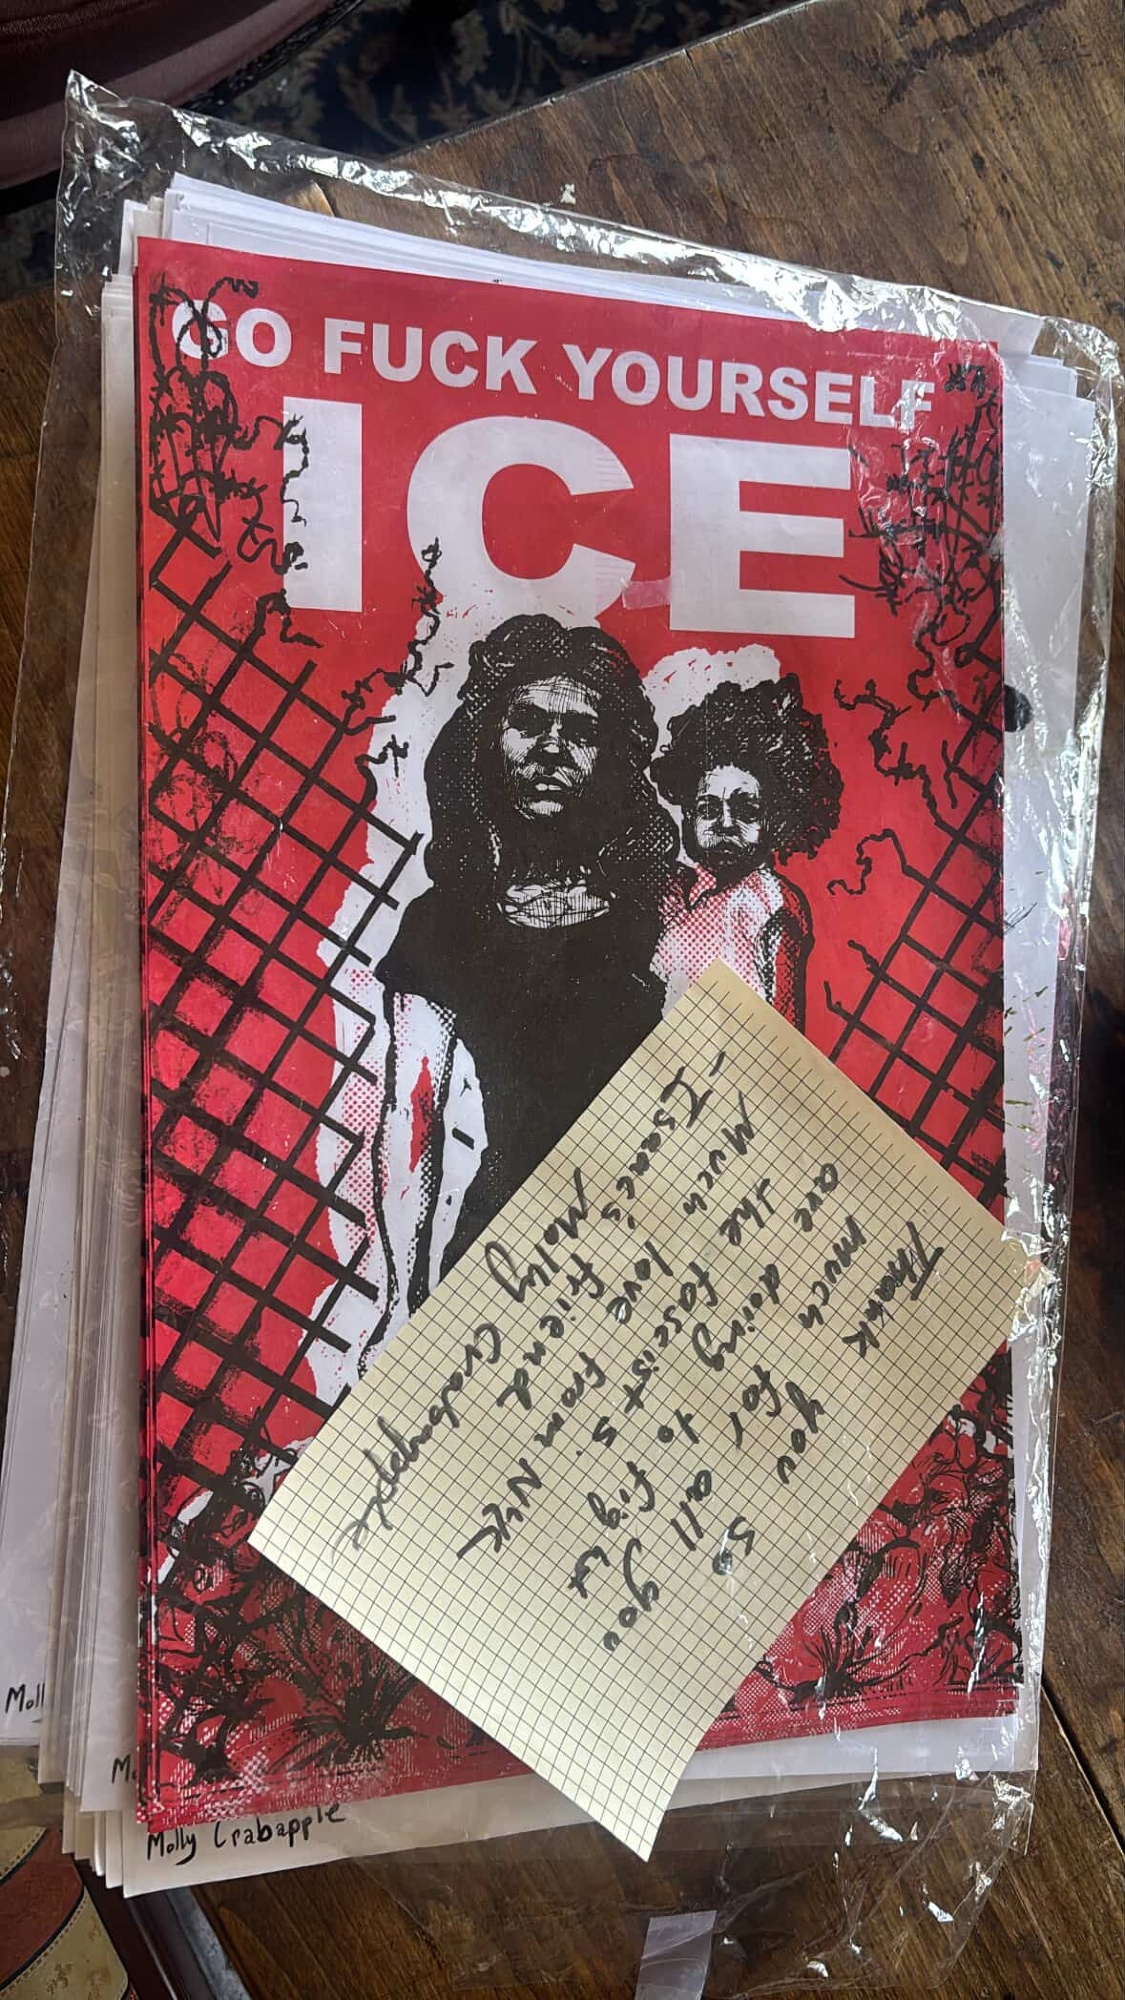 GO FUCK YOURSELF
ICE
Thank you so
much for all you
are doing to fight
the fascists.
Much love from NYK
Isaac's friend
- Molly Crabapple
Moll
M
Molly Crabapple